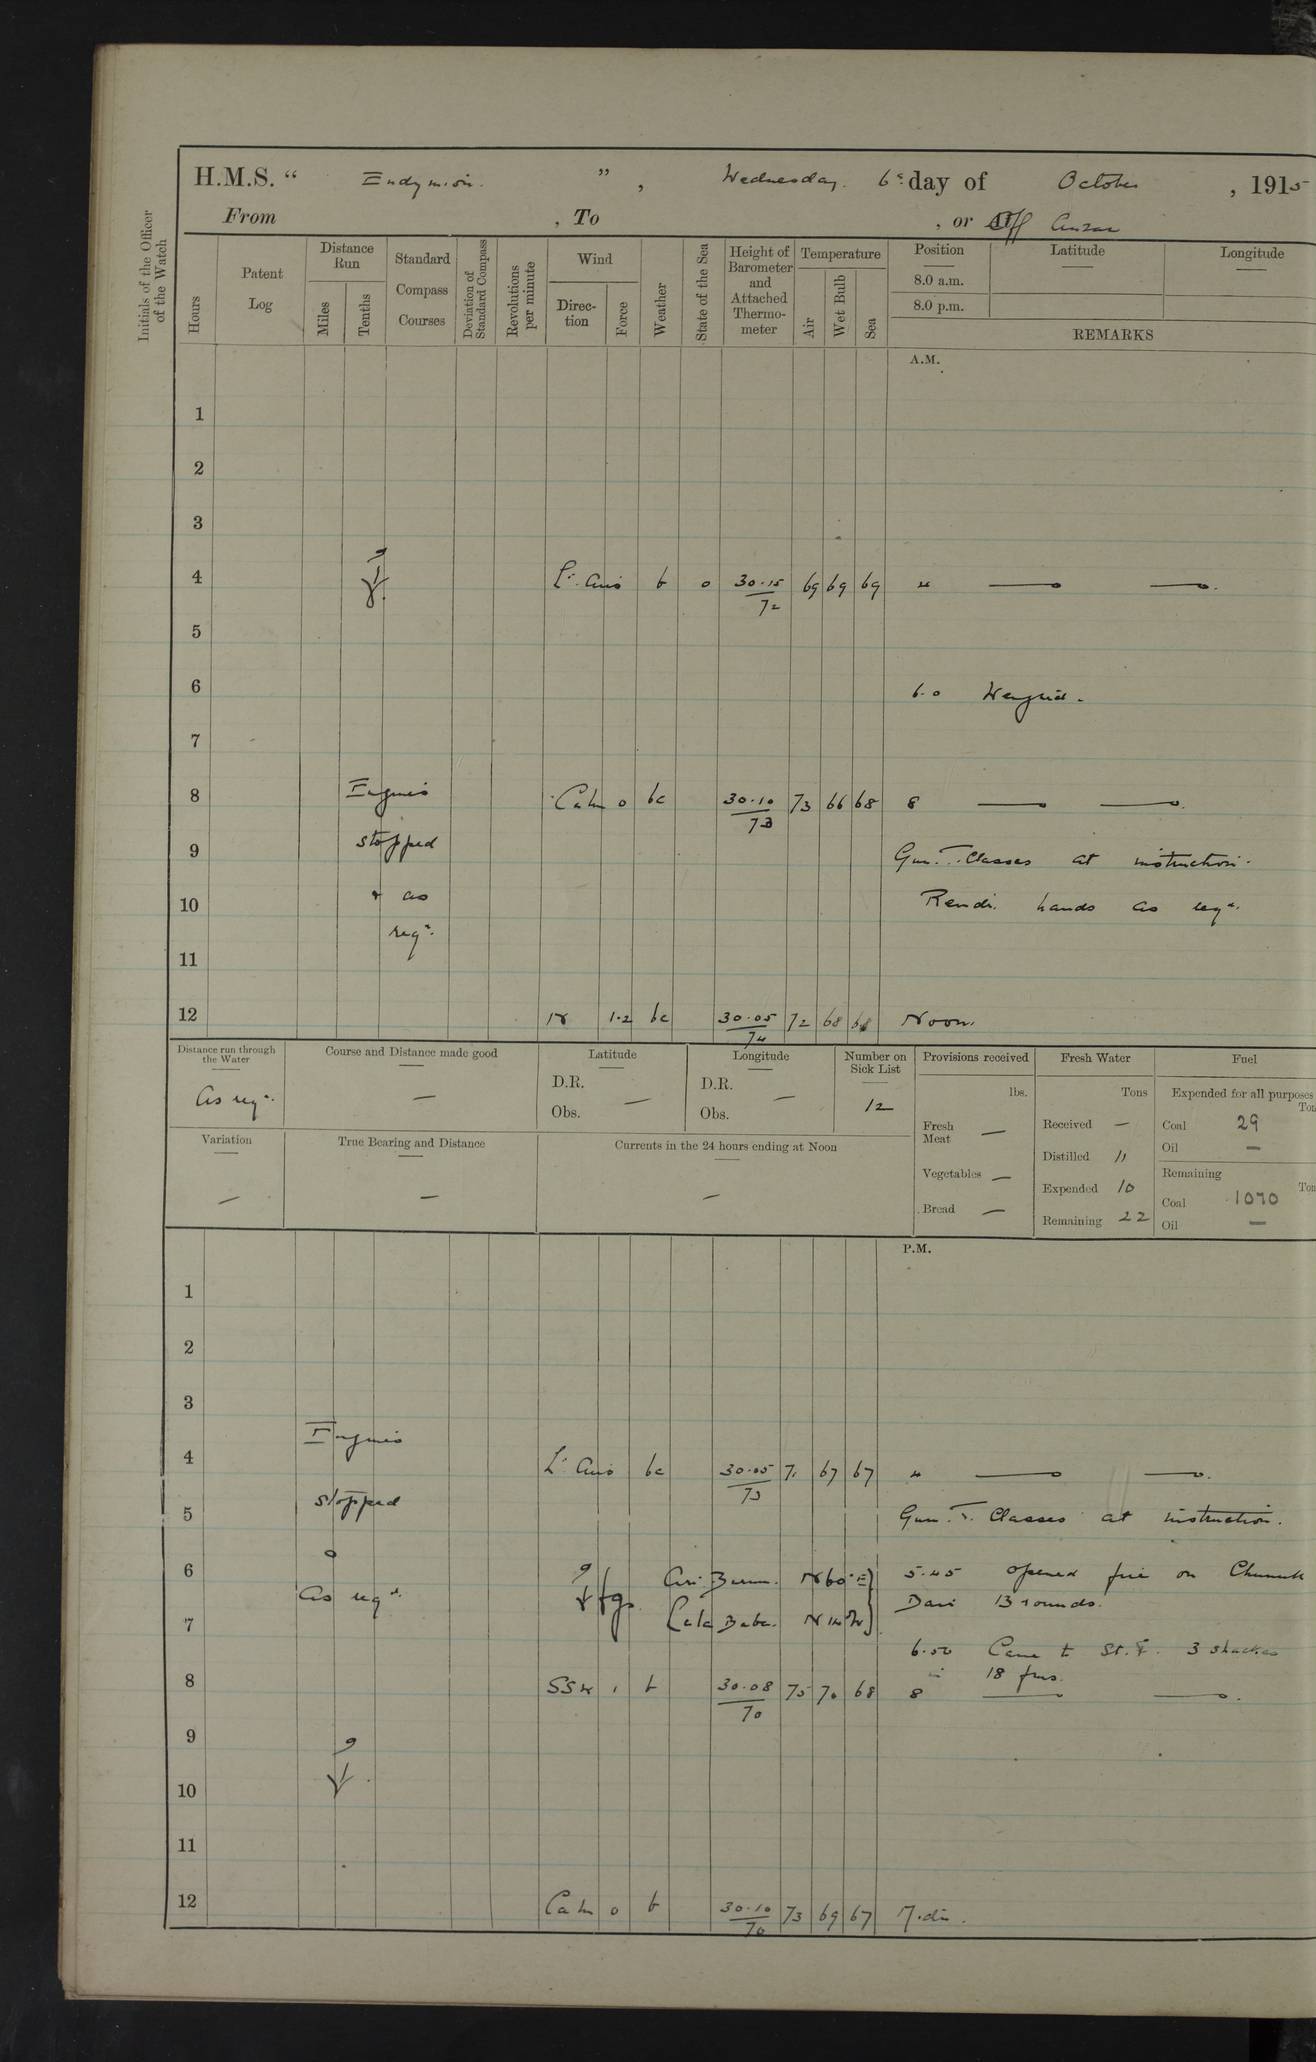 H.M.S. " Endymion. " , Wednesday. 6th day of October , 1915
From , To , or Off Anzac
Initials of the Officer of the Watch
Hours
Patent Log
Distance Run
Miles
Tenths
Standard Compass Courses
Deviation of Standard Compass
Revolutions per minute
Wind
Direc-tion
Force
Weather
State of the Sea
Height of Barometer and Attached Thermo-meter
Temperature
Air
Wet Bulb
Sea
Position
8.0 a.m.
8.0 p.m.
Latitude
Longitude
REMARKS
A.M.
1
2
3
4 Lt. Airs b 0 30.15/72 69 69 69 4
5
6 6.0 Weighed.
7
8 Engines Calm 0 bc 30.10/73 73 66 68 8
stopped
9 Gun. T. Classes at instruction.
10 & as Remdr. hands as reqd.
reqd.
11
12 N 1.2 bc 30.05/74 72 68 68 Noon.
Distance run through the Water
As reqd.
Course and Distance made good
—
Latitude
D.R.
Obs. —
Longitude
D.R.
Obs. —
Number on Sick List
12
Provisions received
lbs.
Fresh Meat —
Vegetables —
Bread —
Fresh Water
Tons
Received —
Distilled 11
Expended 10
Remaining 22
Fuel
Expended for all purposes
Coal 29
Oil —
Remaining
Coal 1070
Oil —
Variation
—
True Bearing and Distance
—
Currents in the 24 hours ending at Noon
—
P.M.
1
2
3
4 Engines Lt. Airs bc 30.05/73 71 67 67 4
5 stopped Gun. T. Classes at instruction.
6 Ari Burnu. N60°E 5.45 opened fire on Chunuk
As reqd. Bair 13 rounds.
7 Lala Baba. N14W
6.50 Came to St. 3 shackles
in 18 fms.
8 SSW 1 b 30.08/70 75 70 68 8
9
10
11
12 Calm 0 b 30.10/70 73 69 67 Mdt.